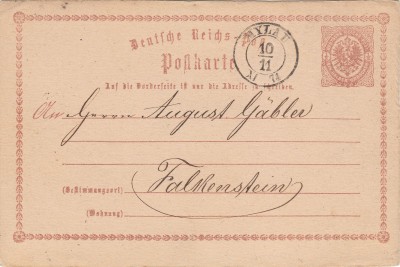 Deutsche Reichs-
Postkarte
MYLAU
10
11
Auf die Vorderseite ist nur die Adresse zu schreiben.
An Herrn August Gäbler
(Bestimmungsort) Falkenstein
(Wohnung)